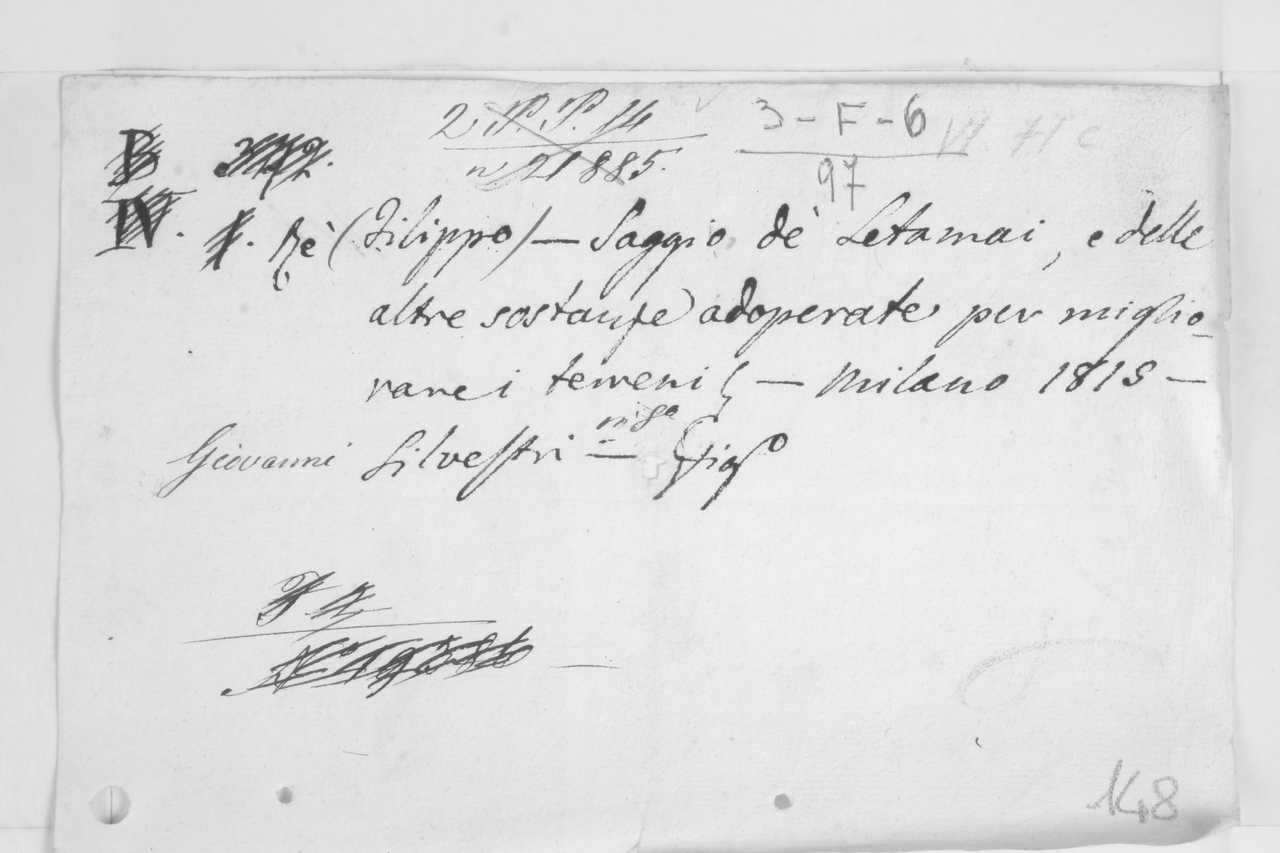 2 P.P. 14
n 21885.
3-F-6
97
VI. 71 c
IV. 1. Rè (Filippo) — Saggio de' Letamai, e delle
altre sostanze adoperate per miglio-
rare i terreni — Milano 1818 —
Giovanni Silvestri — in 8°
F 4
N° 19384
148